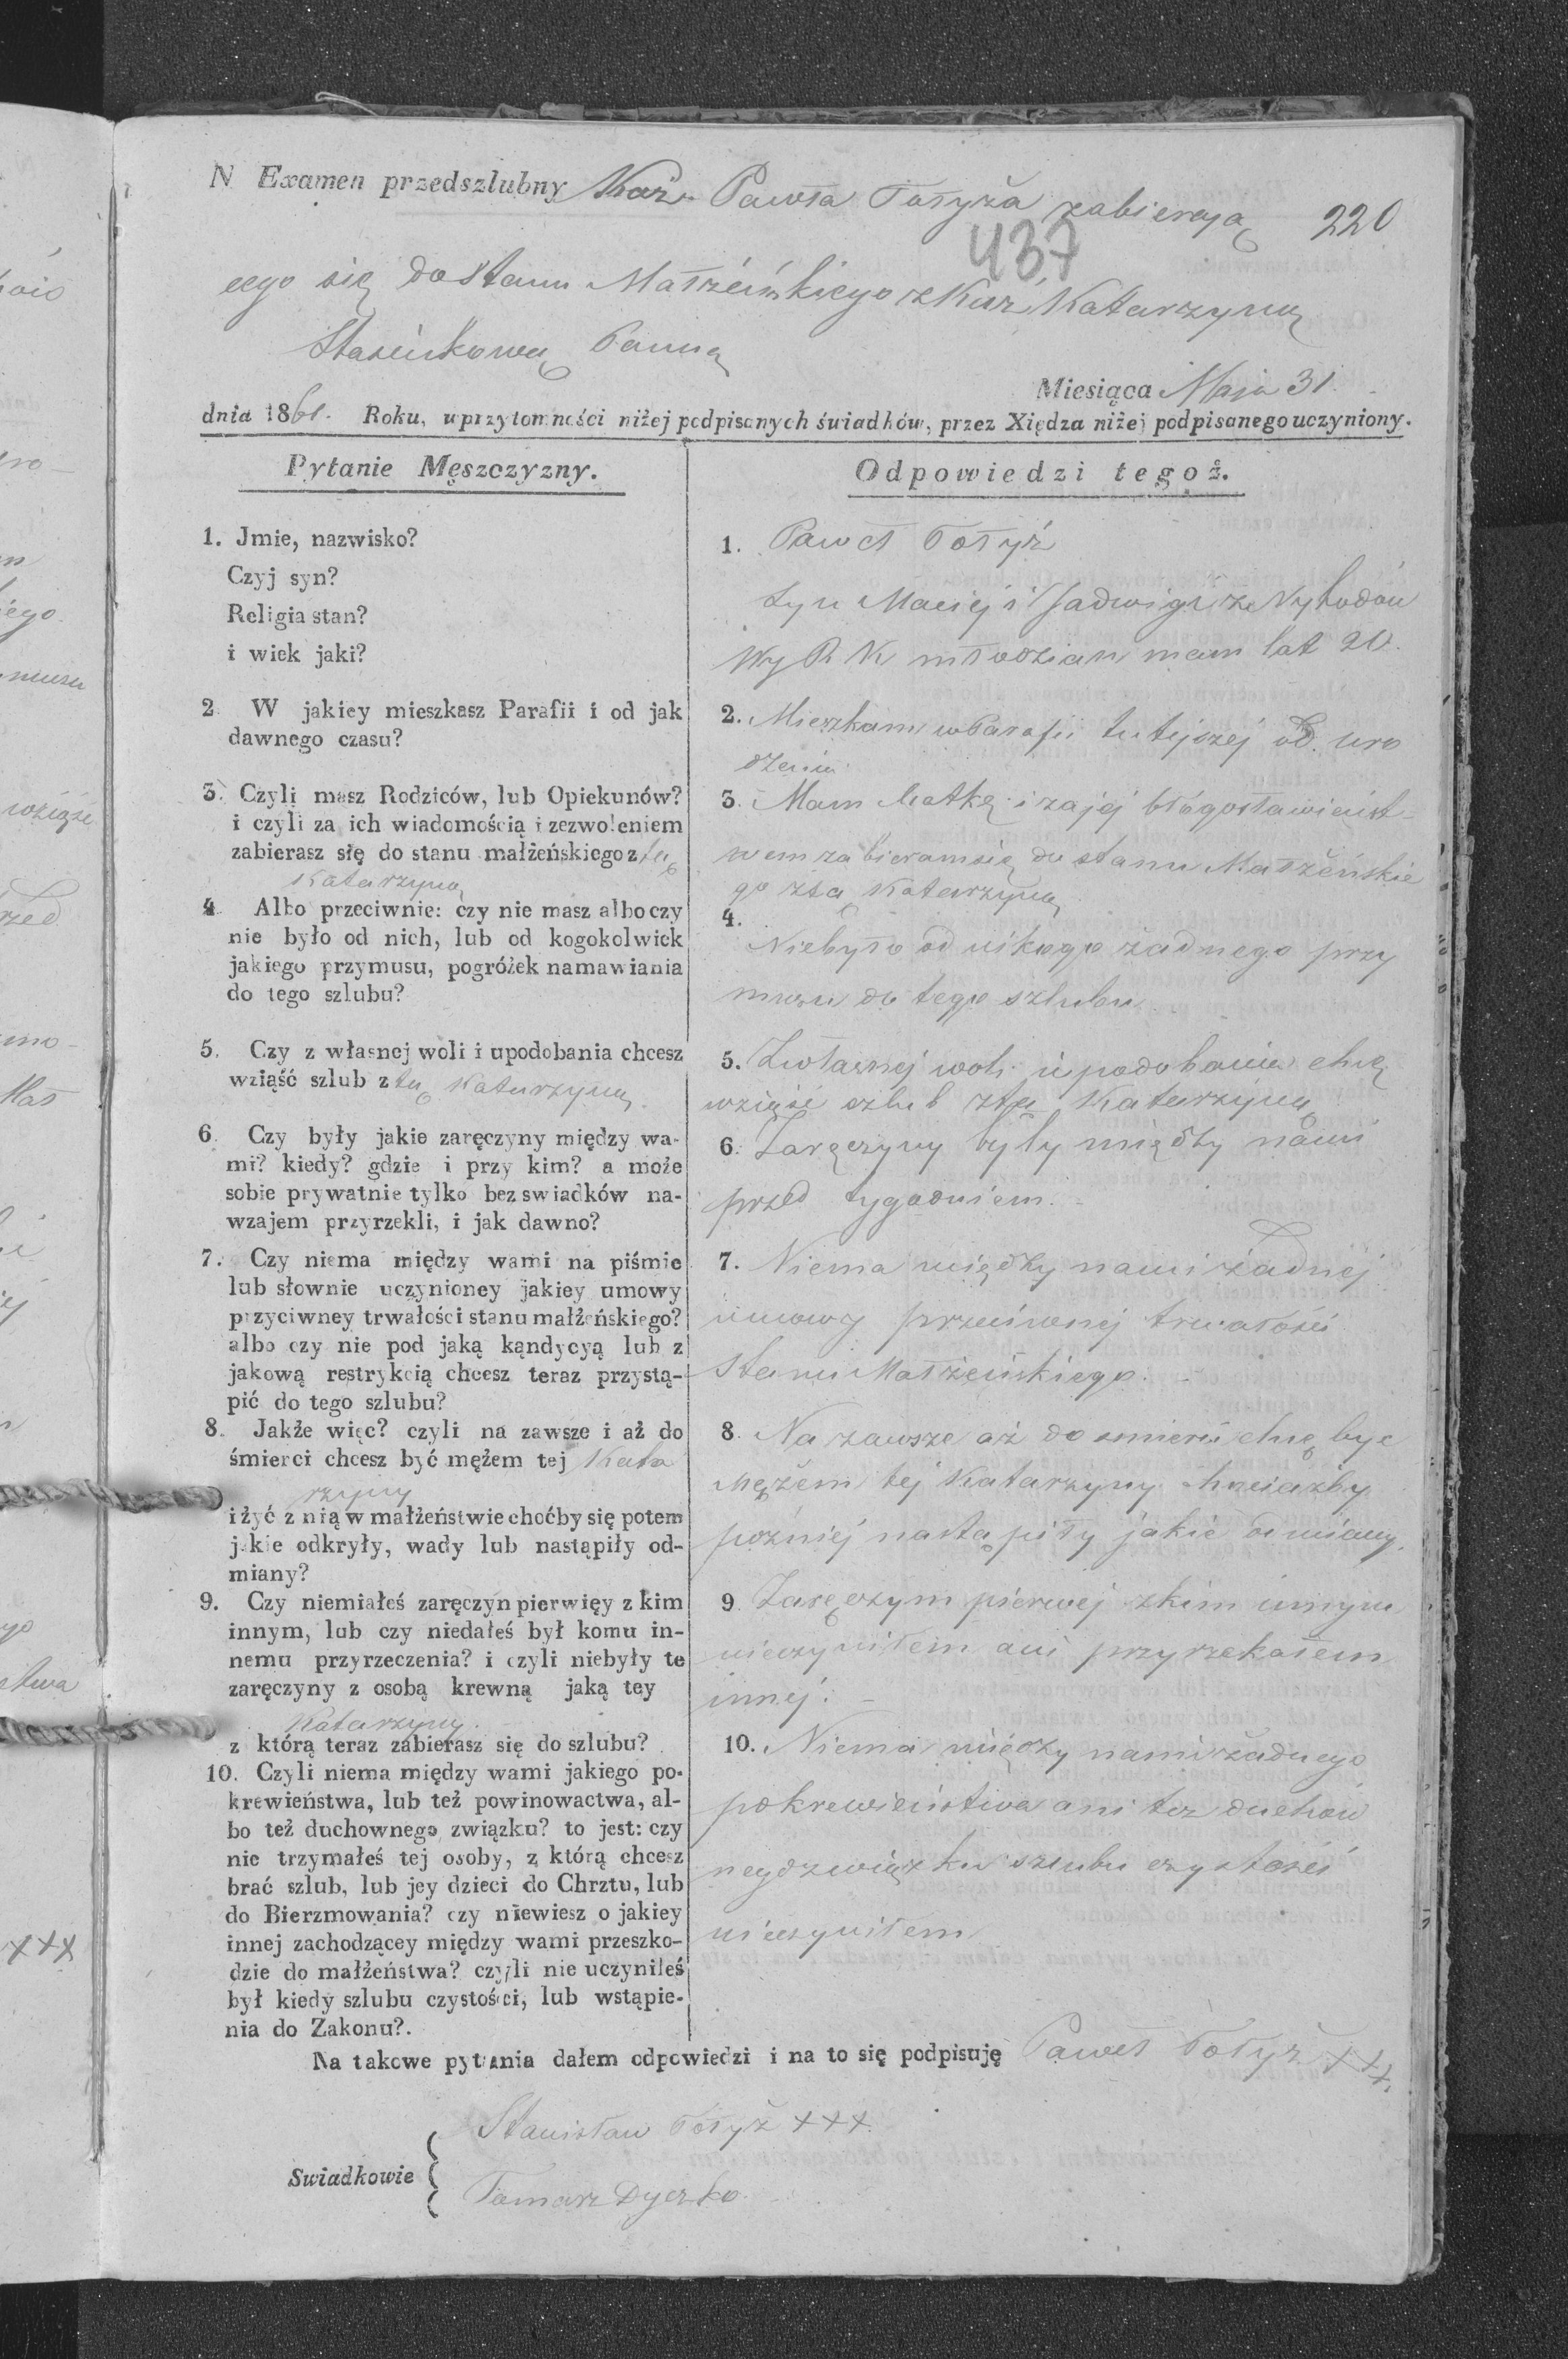 N Examen przedszlubny Kaź. Pawła Tołyża zabierają 220
437
cego się do stanu Małżeńskiego z Kaź. Katarzyną
Stasiukową Panną
Miesiąca Maja 31.
dnia 1861. Roku, w przytomności niżej podpisanych świadków, przez Xiędza niżej podpisanego uczyniony.
Pytanie Męszczyzny.
1. Jmie, nazwisko?
Czyj syn?
Religia stan?
i wiek jaki?
2. W jakiey mieszkasz Parafii i od jak
dawnego czasu?
3. Czyli masz Rodziców, lub Opiekunów?
i czyli za ich wiadomością i zezwoleniem
zabierasz się do stanu małżeńskiego z tą
Katarzyną
4 Albo przeciwnie: czy nie masz albo czy
nie było od nich, lub od kogokolwiek
jakiego przymusu, pogróżek namawiania
do tego szlubu?
5. Czy z własnej woli i upodobania chcesz
wziąść szlub z tą Katarzyną.
6. Czy były jakie zaręczyny między wa-
mi? kiedy? gdzie i przy kim? a może
sobie prywatnie tylko bez swiadków na-
wzajem przyrzekli, i jak dawno?
7. Czy niema między wami na piśmie
lub słownie uczynioney jakiey umowy
przyciwney trwałości stanu małżeńskiego?
albo czy nie pod jaką kąndycyą lub z
jakową restrykcią chcesz teraz przystą-
pić do tego szlubu?
8. Jakże więc? czyli na zawsze i aż do
śmierci chcesz być mężem tej Kata
rzyny
i żyć z nią w małżeństwie choćby się potem
jakie odkryły, wady lub nastąpiły od-
miany?
9. Czy niemiałeś zaręczyn pierwięy z kim
innym, lub czy niedałeś był komu in-
nemu przyrzeczenia? i czyli niebyły te
zaręczyny z osobą krewną jaką tey
Katarzyny.
z którą teraz zabierasz się do szlubu?
10. Czyli niema między wami jakiego po-
krewieństwa, lub też powinowactwa, al-
bo też duchownego związku? to jest: czy
nie trzymałeś tej osoby, z którą chcesz
brać szlub, lub jey dzieci do Chrztu, lub
do Bierzmowania? czy niewiesz o jakiey
innej zachodzącey między wami przeszko-
dzie do małżeństwa? czyli nie uczyniłeś
był kiedy szlubu czystości, lub wstąpie-
nia do Zakonu?.
Odpowiedzi tegoż.
1. Paweł Tołyż
syn Maciej i Jadwigi ze Wyhodów
Wy R K młodzian mam lat 20.
2. Mieszkam w Parafii tutejszej od uro
dzenia.
3. Mam Matkę i za jej błogosławieńst-
wem zabieram się do stanu Małżeńskie
go z tą Katarzyną
4. Niebyło od nikogo żadnego przy
musu do tego szlubu
5. Z własnej woli i upodobania chcę
wziąść szlub z tą Katarzyną
6. Zaręczyny były między nami
przed tygodniem.
7. Niema między nami żadnej
umowy przeciwnej trwałości
stanu Małżeńskiego.
8. Na zawsze aż do smierci chcę być
Mężem tej Katarzyny chociażby
pozniej nastąpiły jakie odmiany.
9. Zaręczyn pierwej z kim innym
nieczyniłem ani przyrzekałem
innej.
10. Niema między nami żadnego
pokrewieństwa ani też duchow
nego związku szlubu czystości
nieczyniłem
Na takowe pytania dałem odpowiedzi i na to się podpisuję Paweł Tołyż +++
Swiadkowie
Stanisław Tołyż +++
Tomasz Dyczko.